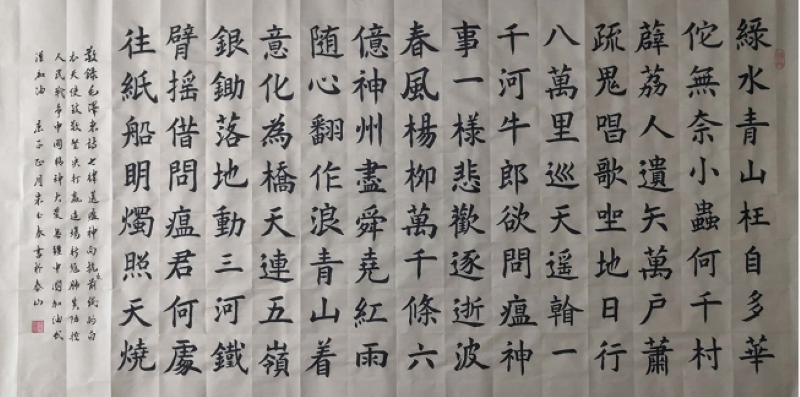 綠水青山枉自多華
佗無奈小蟲何千村
薜荔人遺矢萬戶蕭
疏鬼唱歌坐地日行
八萬里巡天遥翰一
千河牛郎欲問瘟神
事一樣悲歡逐逝波
春風楊柳萬千條六
億神州盡舜堯紅雨
随心翻作浪青山着
意化為橋天連五嶺
銀鋤落地動三河鐵
臂摇借問瘟君何處
往紙船明燭照天燒
敬錄毛澤東詩七律送瘟神向抗疫前线的白
衣天使致敬堅决打贏這場新冠肺炎防控
人民戰争中國精神大愛無疆中國加油武
漢加油 庚子正月書於泰山